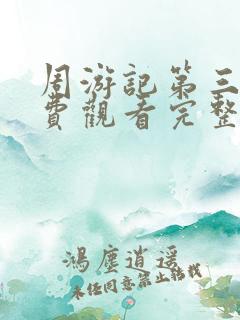 周游記第三
費觀看完整
鴻塵逍遥
未任同意禁止轉載